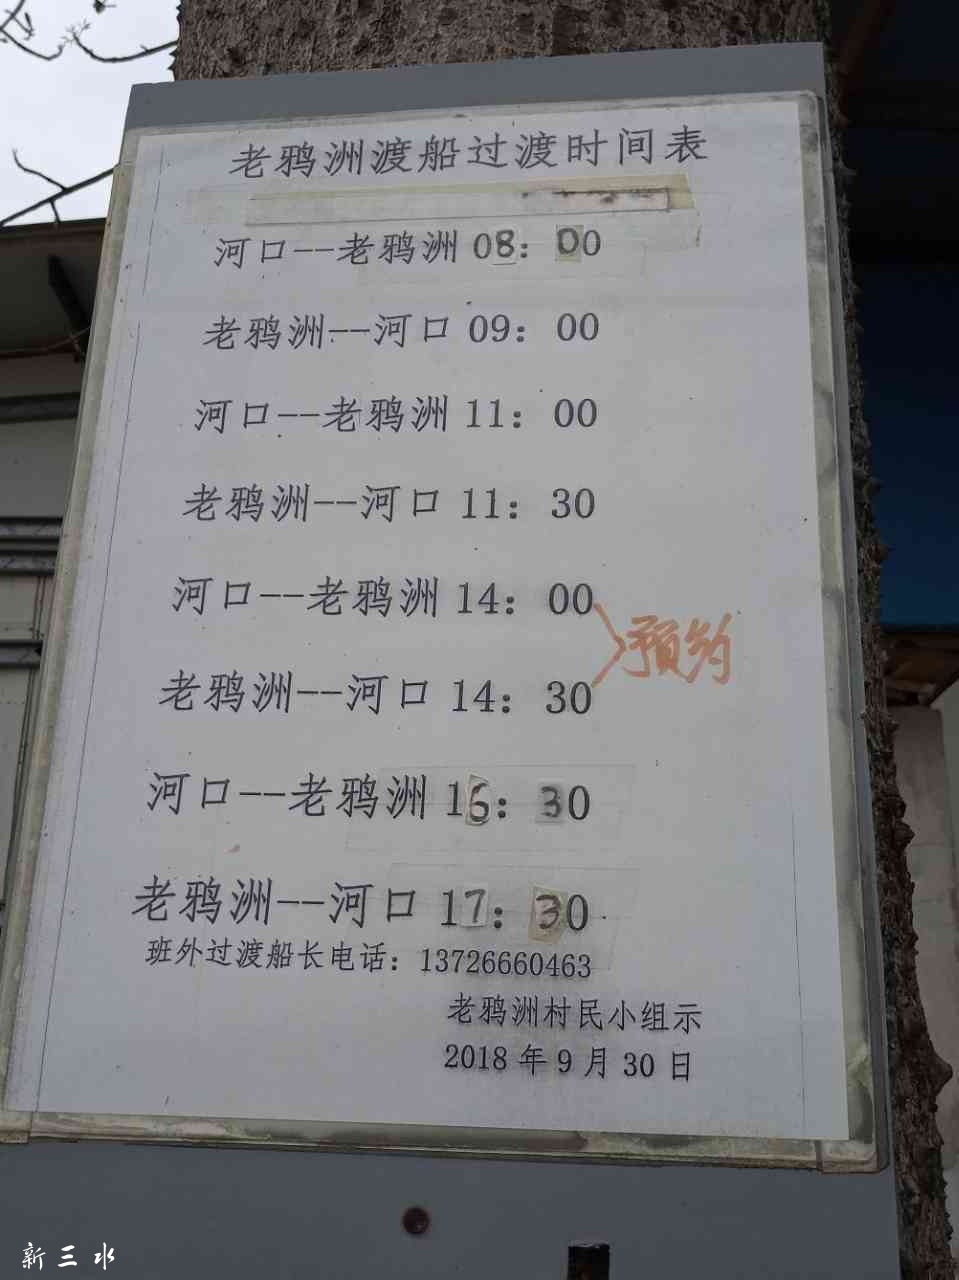 老鸦洲渡船过渡时间表
河口--老鸦洲 08：00
老鸦洲--河口 09：00
河口--老鸦洲 11：00
老鸦洲--河口 11：30
河口--老鸦洲 14：00
预约
老鸦洲--河口 14：30
河口--老鸦洲 16：30
老鸦洲--河口 17：30
班外过渡船长电话：13726660463
老鸦洲村民小组示
2018 年 9 月 30 日
新三水